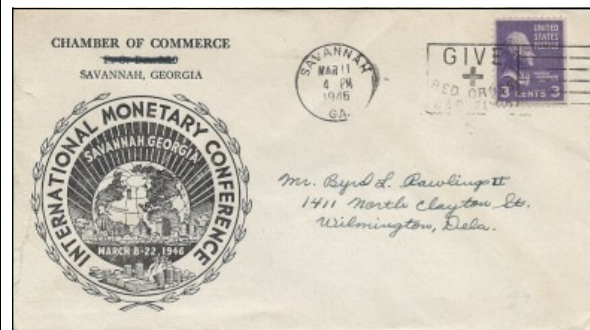 CHAMBER OF COMMERCE
SAVANNAH, GEORGIA
SAVANNAH
MAR 11
4 PM
1946
GA.
GIVE
RED CROSS
UNITED
STATES
3 CENTS 3
INTERNATIONAL MONETARY CONFERENCE
SAVANNAH GEORGIA
MARCH 8-22, 1946
Mr. Byrd L. Rawlings II
1411 North Clayton St.
Wilmington, Dela.